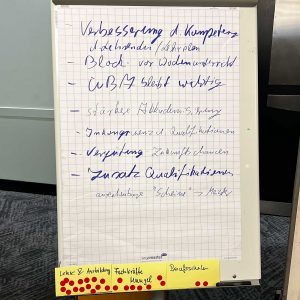 Verbesserung d. Kompetenz
d. Lehrenden /
- Block- vor Wochenunterricht
- ÜBA bleibt wichtig
- stärkere Akademisierung
- Inkongruenz d. Qualifikationen
- Vergütung Zukunftschancen
- Zusatz Qualifikationen
"Scheine" → Meister
Lehre & Ausbildung Fachkräfte
Mangel
Berufsschulen